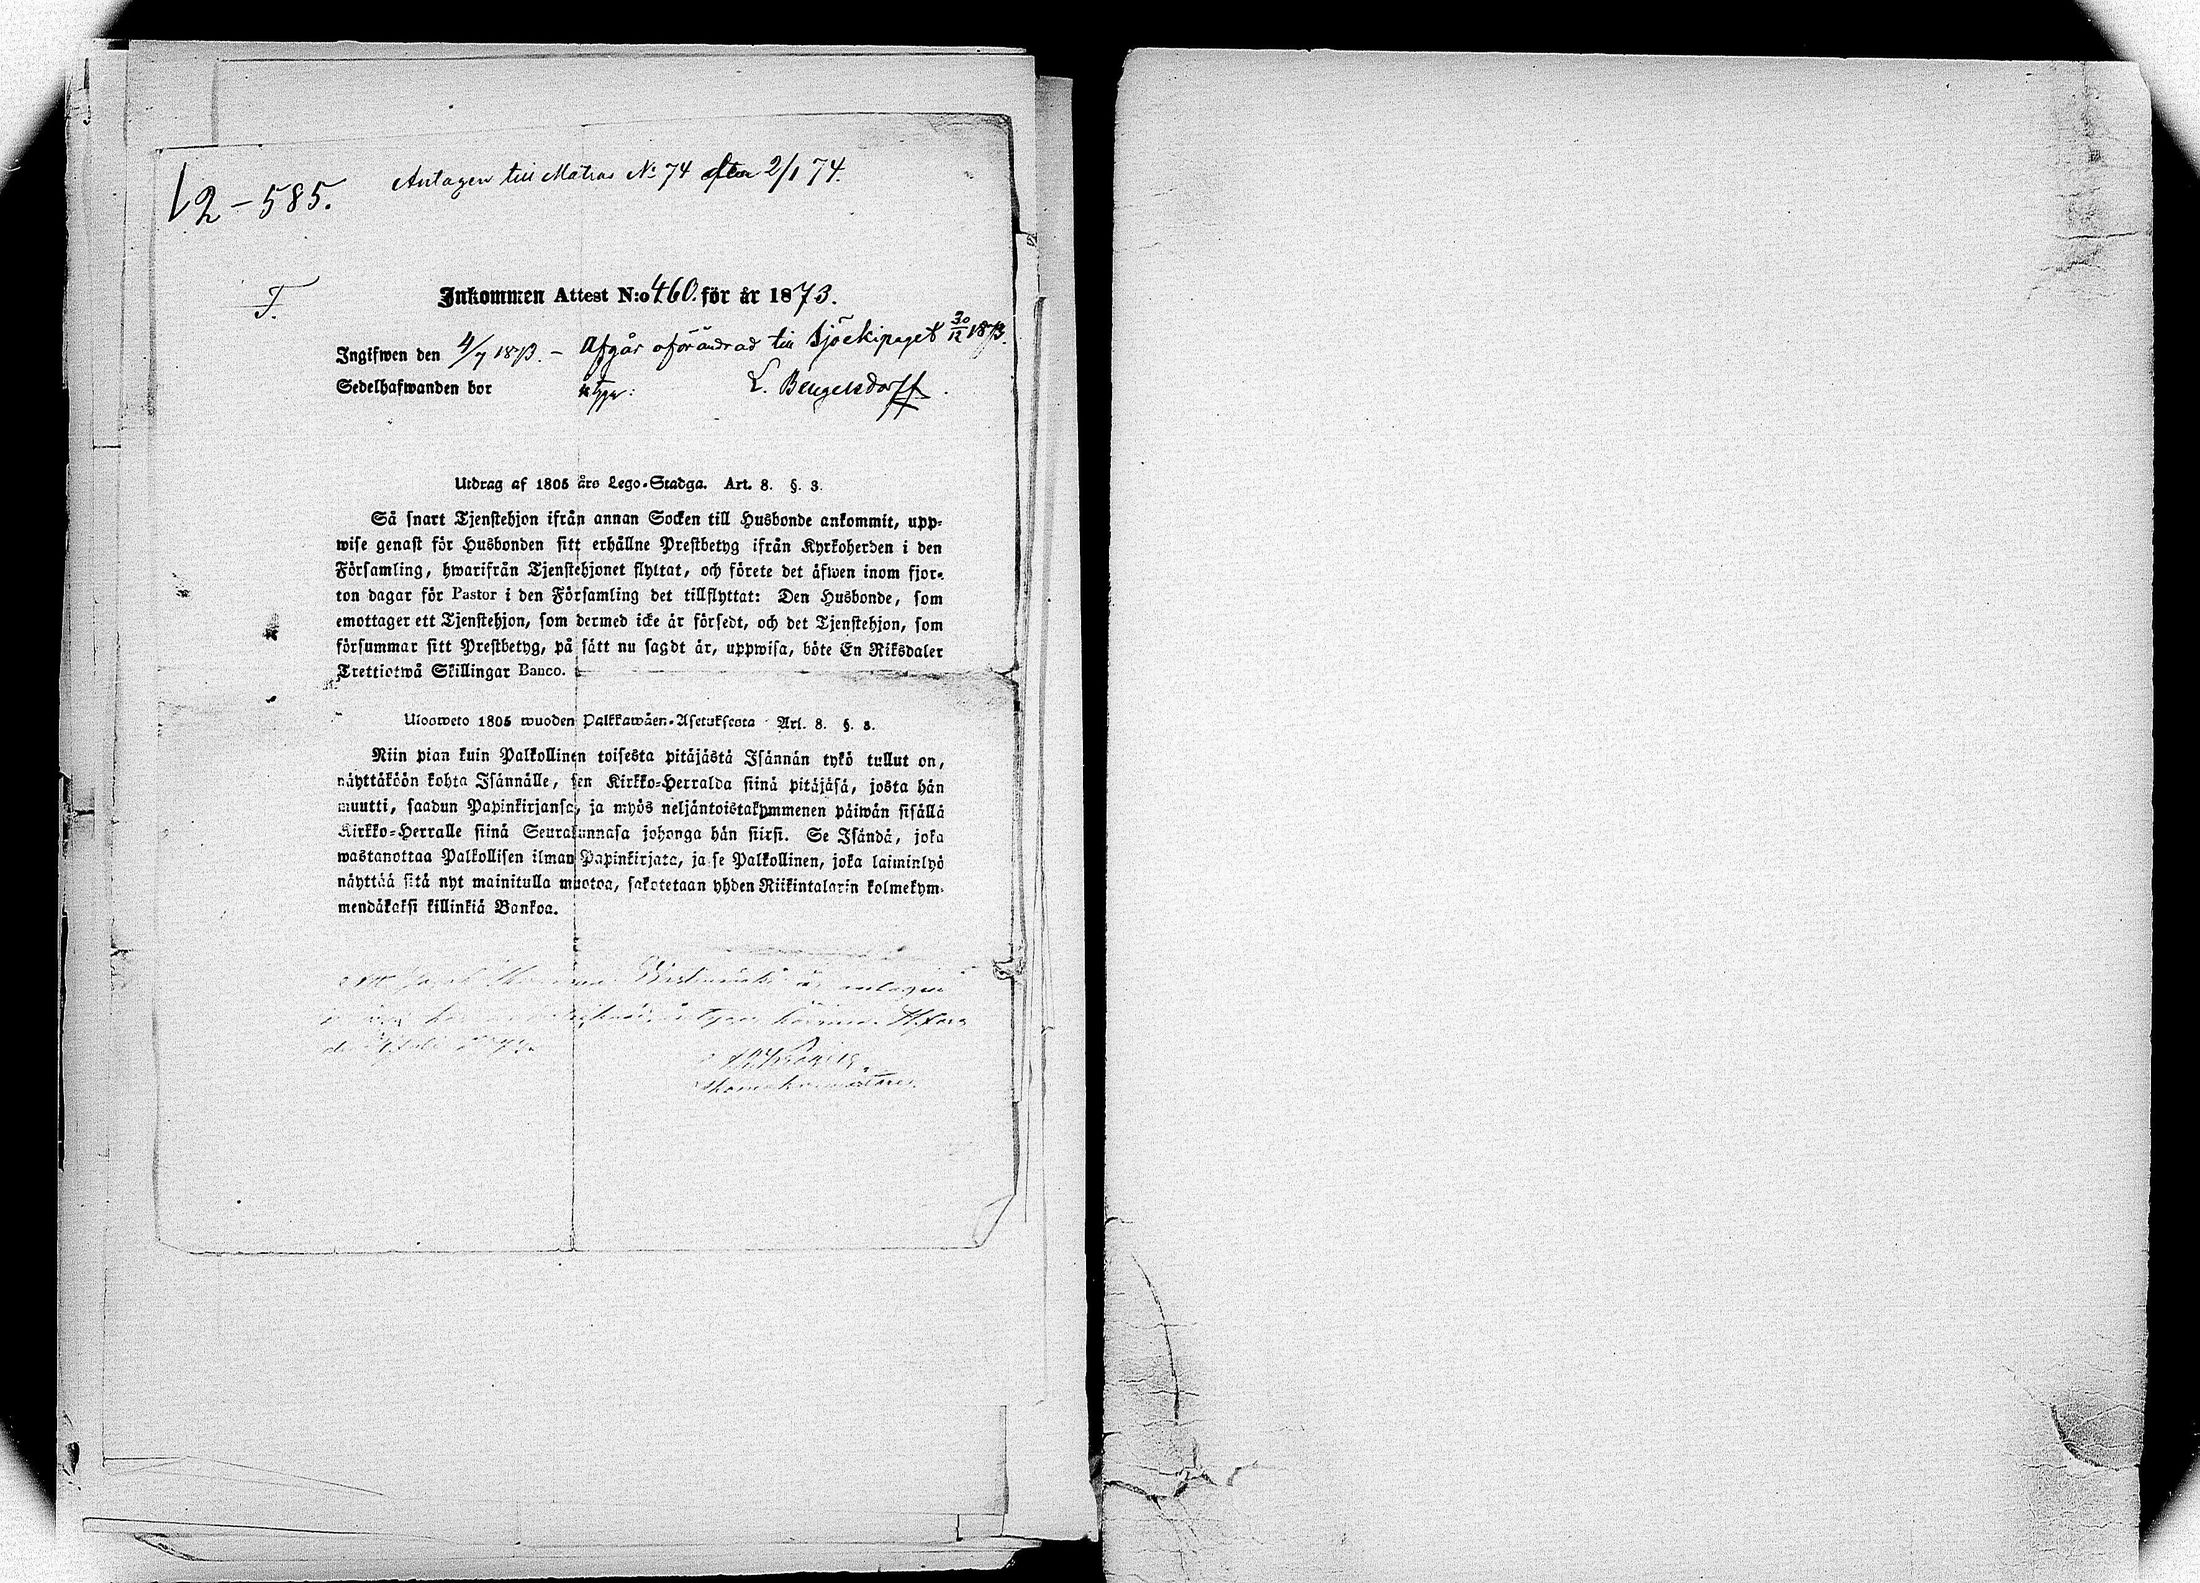 Antagen till Matros No 74 den 2/1 74.
V2-585.
T.
Inkommen Attest N:o 460. för år 1873.
Ingifwen den 4/7 1873. - Afgår oförändrad till Sjöekipaget 30/12 1873.
Sedelhafwanden bor L. Bengelsdorff.
Utdrag af 1805 års Lego-Stadga. Art. 8. §. 3.
Så snart Tjenstehjon ifrån annan Socken till Husbonde ankommit, upp-
wise genast för Husbonden sitt erhållne Prestbetyg ifrån Kyrkoherden i den
Församling, hwarifrån Tjenstehjonet flyttat, och förete det äfwen inom fjor-
ton dagar för Pastor i den Församling det tillflyttat: Den Husbonde, som
emottager ett Tjenstehjon, som dermed icke är försedt, och det Tjenstehjon, som
försummar sitt Prestbetyg, på sätt nu sagdt är, uppwisa, böte En Riksdaler
Trettiotwå Skillingar Banco.
Ulosweto 1805 wuoden Palkkawäen-Asetuksesta Art. 8. §. 3.
Niin pian kuin Palkollinen toisesta pitäjästä Isännän tykö tullut on,
näyttäköön kohta Isännälle, sen Kirkko-Herralda siinä pitäjäsä, josta hän
muutti, saadun Papinkirjansa, ja myös neljäntoistakymmenen päiwän sisällä
Kirkko-Herralle siinä Seurakunnasa johonga hän siirsi. Se Isändä, joka
wastanottaa Palkollisen ilman Papinkirjata, ja se Palkollinen, joka laiminlyö
näyttää sitä nyt mainitulla muotoa, sakotetaan yhden Riikintalarin kolmekym-
mendäkaksi killinkiä Bankoa.